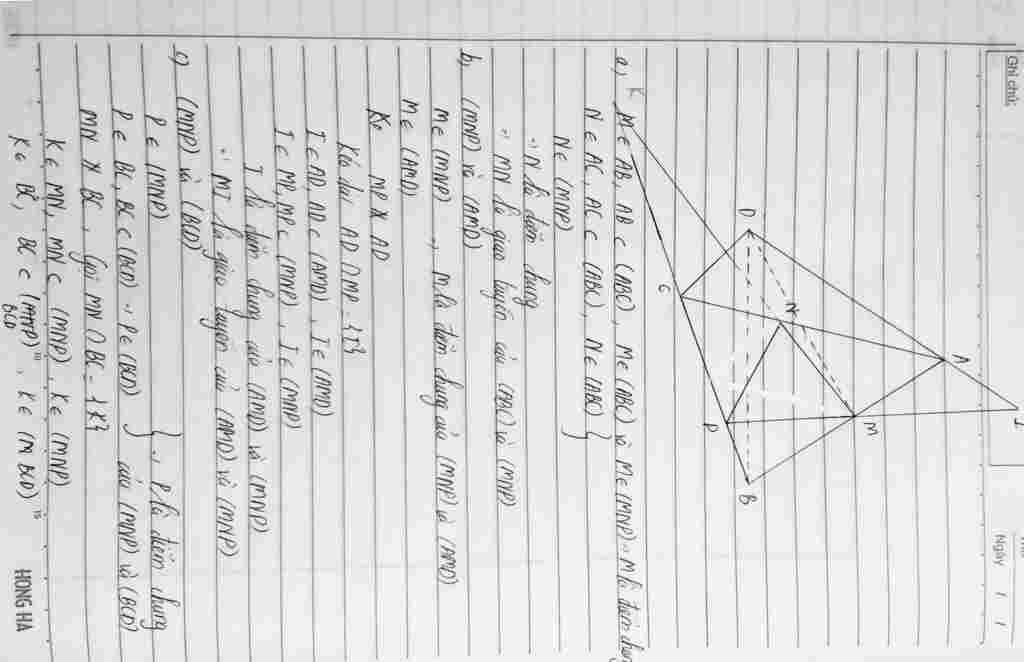 Ghi chú:
Ngày / /
I
A
M
D
N
B
C
P
K
a) M ∈ AB, AB ⊂ (ABC), M ∈ (ABC) và M ∈ (MNP) ∴ M là điểm chung
N ∈ AC, AC ⊂ (ABC), N ∈ (ABC) }
N ∈ (MNP)
∴ N là điểm chung
∴ MN là giao tuyến của (ABC) và (MNP)
b) (MNP) và (AMD)
M ∈ (MNP) ∴ M là điểm chung của (MNP) và (AMD)
M ∈ (AMD)
MP X AD
Kéo dài AD ∩ MP = {I}
I ∈ AD, AD ⊂ (AMD), I ∈ (AMD)
I ∈ MP, MP ⊂ (MNP), I ∈ (MNP)
I là điểm chung của (AMD) và (MNP)
∴ MI là giao tuyến của (AMD) và (MNP)
c) (MNP) và (BCD)
P ∈ (MNP) } ∴ P là điểm chung
P ∈ BC, BC ⊂ (BCD) ∴ P ∈ (BCD) của (MNP) và (BCD)
MN X BC, Gọi MN ∩ BC = {K}
K ∈ MN, MN ⊂ (MNP), K ∈ (MNP)
K ∈ BC, BC ⊂ (MNP), K ∈ (BCD)
BCD
HONG HA